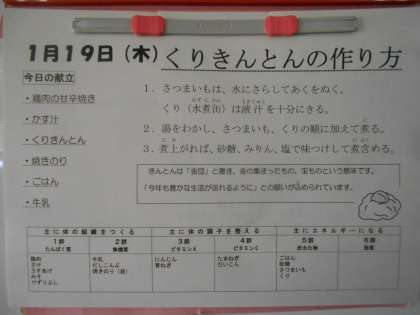 1月19日（木）くりきんとんの作り方
今日の献立
・鶏肉の甘辛焼き
・かす汁
・くりきんとん
・焼きのり
・ごはん
・牛乳
1．さつまいもは、水にさらしてあくをぬく。
くり（水煮缶）は液汁を十分にきる。
2．湯をわかし、さつまいも、くりの順に加えて煮る。
3．煮上がれば、砂糖、みりん、塩で味つけして煮含める。
きんとんは「金団」と書き、金の集まったもの、宝ものという意味です。
「今年も豊かな生活が送れるように」との願いが込められています。
主に体の組織をつくる 主に体の調子を整える 主にエネルギーになる
1群 2群 3群 4群 5群 6群
たんぱく質 無機質 ビタミンA ビタミンC 炭水化物 脂質
鶏肉 牛乳 にんじん たまねぎ ごはん
さけ だしこんぶ 青ねぎ だいこん 砂糖
うすあげ 焼きのり さつまいも
みそ くり
けずりぶし